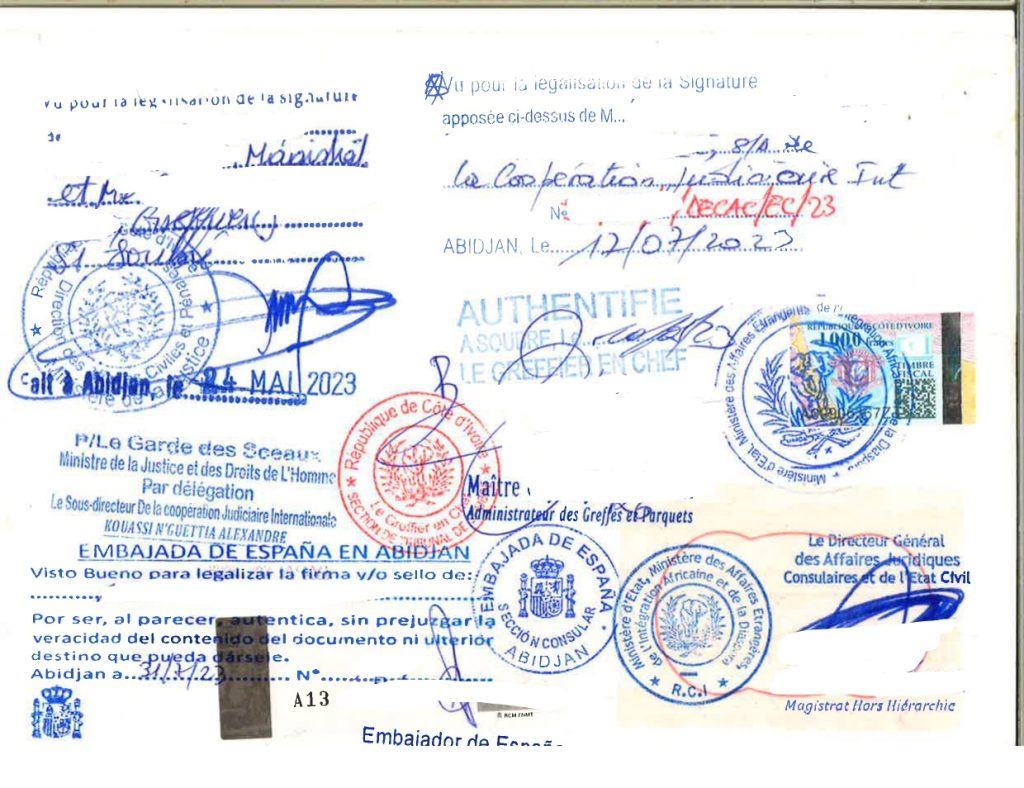 Vu pour la légalisation de la signature
de
Maréchal
et Me
Fait à Abidjan, le 24 MAI 2023
P/Le Garde des Sceaux
Ministre de la Justice et des Droits de L'Homme
Par délégation
Le Sous-directeur De la coopération Judiciaire Internationale
KOUASSI N'GUETTIA ALEXANDRE
Vu pour la légalisation de la Signature
apposée ci-dessus de M...
S/D de
la Coopération Judiciaire Int
N° DECAC/EC/23
ABIDJAN, Le 12/07/2023
AUTHENTIFIE
A SOUBRE Le
LE GREFFIER EN CHEF
République de Côte d'Ivoire
Le Greffier en Chef
SECTION DE TRIBUNAL DE
Maître
Administrateur des Greffes et Parquets
Ministère d'Etat, Ministère des Affaires Etrangères de l'Intégration Africaine et de la Diaspora
REPUBLIQUE DE CÔTE D'IVOIRE
1000 francs
TIMBRE
FISCAL
EMBAJADA DE ESPAÑA EN ABIDJAN
Visto Bueno para legalizar la firma y/o sello de:
Por ser, al parecer, autentica, sin prejuzgar la
veracidad del contenido del documento ni ulterior
destino que pueda dársele.
Abidjan a 31/7/23 N°
A13
Embajador de España
EMBAJADA DE ESPAÑA
SECCIÓN CONSULAR
ABIDJAN
Ministère d'Etat, Ministère des Affaires Etrangères,
de l'Intégration Africaine et de la Diaspora
R.C.I
Le Directeur Général
des Affaires Juridiques
Consulaires et de l'Etat Civil
Magistrat Hors Hiérarchie